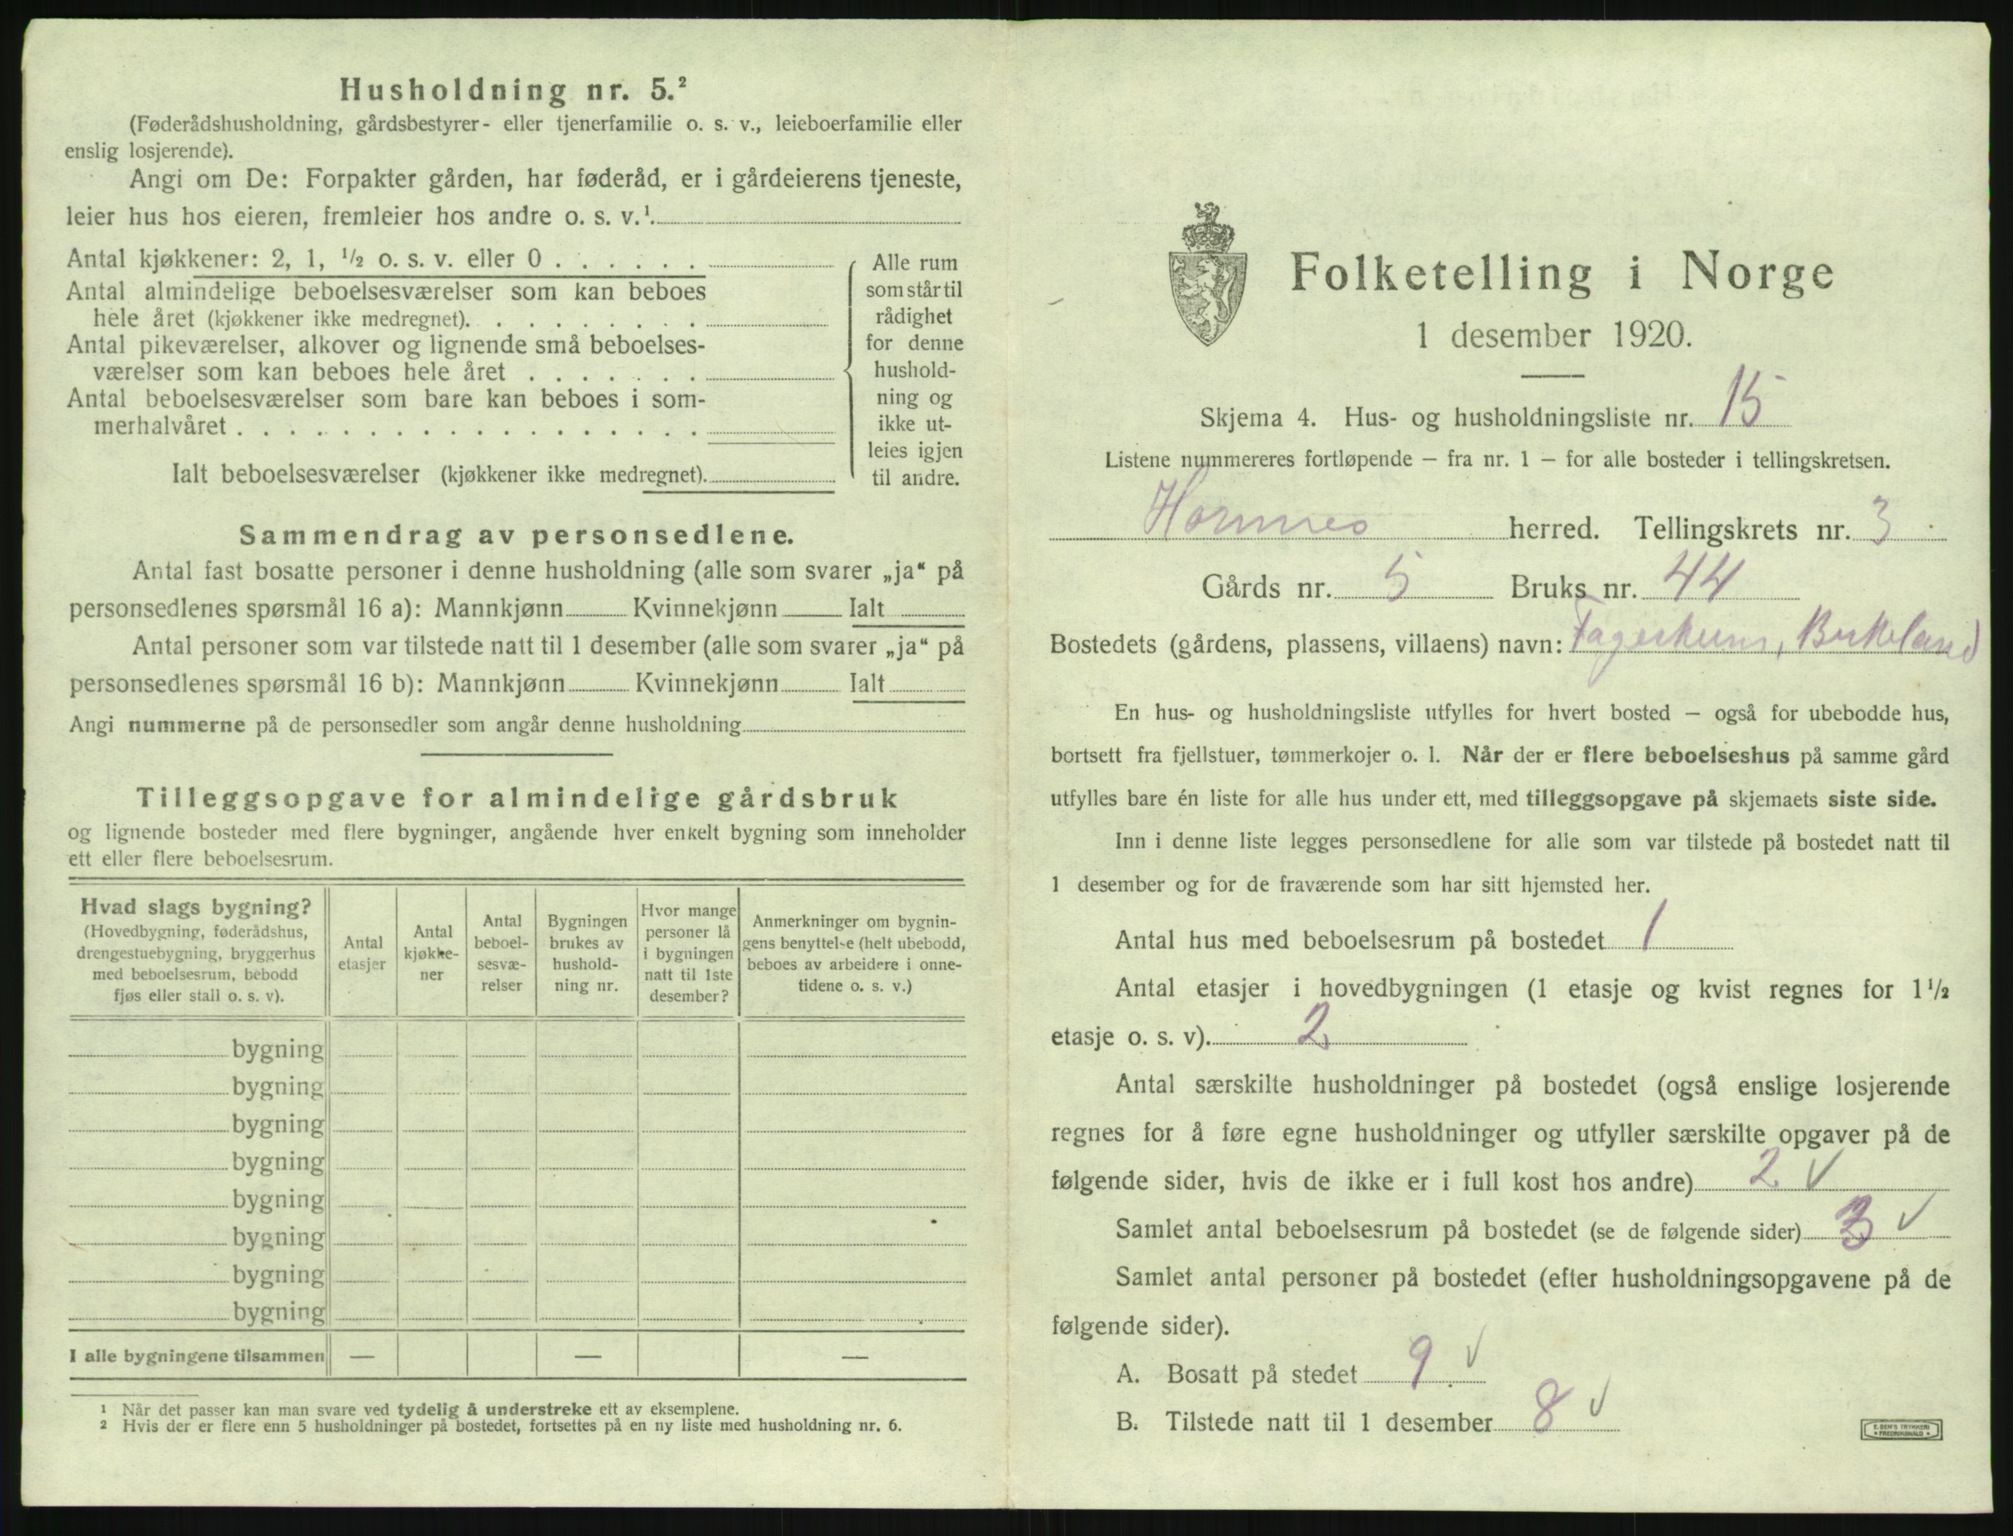 Husholdning nr. 5.²
(Føderådshusholdning, gårdsbestyrer- eller tjenerfamilie o. s. v., leieboerfamilie eller
enslig losjerende).
Angi om De: Forpakter gården, har føderåd, er i gårdeierens tjeneste,
leier hus hos eieren, fremleier hos andre o. s. v.¹
Antal kjøkkener: 2, 1, ½ o. s. v. eller 0 . . . . . .
Antal almindelige beboelsesværelser som kan beboes
hele året (kjøkkener ikke medregnet). . . . . . . . .
Antal pikeværelser, alkover og lignende små beboelses-
værelser som kan beboes hele året . . . . . . .
Antal beboelsesværelser som bare kan beboes i som-
merhalvåret . . . . . . . . . . . . . . . . . .
Ialt beboelsesværelser (kjøkkener ikke medregnet).
Alle rum
som står til
rådighet
for denne
hushold-
ning og
ikke ut-
leies igjen
til andre.
Sammendrag av personsedlene.
Antal fast bosatte personer i denne husholdning (alle som svarer „ja“ på
personsedlenes spørsmål 16 a): Mannkjønn Kvinnekjønn Ialt
Antal personer som var tilstede natt til 1 desember (alle som svarer „ja“ på
personsedlenes spørsmål 16 b): Mannkjønn Kvinnekjønn Ialt
Angi nummerne på de personsedler som angår denne husholdning
Tilleggsopgave for almindelige gårdsbruk
og lignende bosteder med flere bygninger, angående hver enkelt bygning som inneholder
ett eller flere beboelsesrum.
Hvad slags bygning?
(Hovedbygning, føderådshus,
drengestuebygning, bryggerhus
med beboelsesrum, bebodd
fjøs eller stall o. s. v).
Antal
etasjer
Antal
kjøkke-
ner
Antal
beboel-
sesvæ-
relser
Bygningen
brukes av
hushold-
ning nr.
Hvor mange
personer lå
i bygningen
natt til 1ste
desember?
Anmerkninger om bygnin-
gens benyttelse (helt ubebodd,
beboes av arbeidere i onne-
tidene o. s. v.)
bygning
bygning
bygning
bygning
bygning
bygning
bygning
bygning
I alle bygningene tilsammen — — —
¹ Når det passer kan man svare ved tydelig å understreke ett av eksemplene.
² Hvis der er flere enn 5 husholdninger på bostedet, fortsettes på en ny liste med husholdning nr. 6.
Folketelling i Norge
1 desember 1920.
Skjema 4. Hus- og husholdningsliste nr. 15
Listene nummereres fortløpende – fra nr. 1 – for alle bosteder i tellingskretsen.
Hornnes herred. Tellingskrets nr. 3
Gårds nr. 5 Bruks nr. 44
Bostedets (gårdens, plassens, villaens) navn: Birkeland
En hus- og husholdningsliste utfylles for hvert bosted – også for ubebodde hus,
bortsett fra fjellstuer, tømmerkojer o. l. Når der er flere beboelseshus på samme gård
utfylles bare én liste for alle hus under ett, med tilleggsopgave på skjemaets siste side.
Inn i denne liste legges personsedlene for alle som var tilstede på bostedet natt til
1 desember og for de fraværende som har sitt hjemsted her.
Antal hus med beboelsesrum på bostedet 1
Antal etasjer i hovedbygningen (1 etasje og kvist regnes for 1½
etasje o. s. v). 2
Antal særskilte husholdninger på bostedet (også enslige losjerende
regnes for å føre egne husholdninger og utfyller særskilte opgaver på de
følgende sider, hvis de ikke er i full kost hos andre) 2 √
Samlet antal beboelsesrum på bostedet (se de følgende sider) 3 √
Samlet antal personer på bostedet (efter husholdningsopgavene på de
følgende sider).
A. Bosatt på stedet 9 √
B. Tilstede natt til 1 desember 8 √